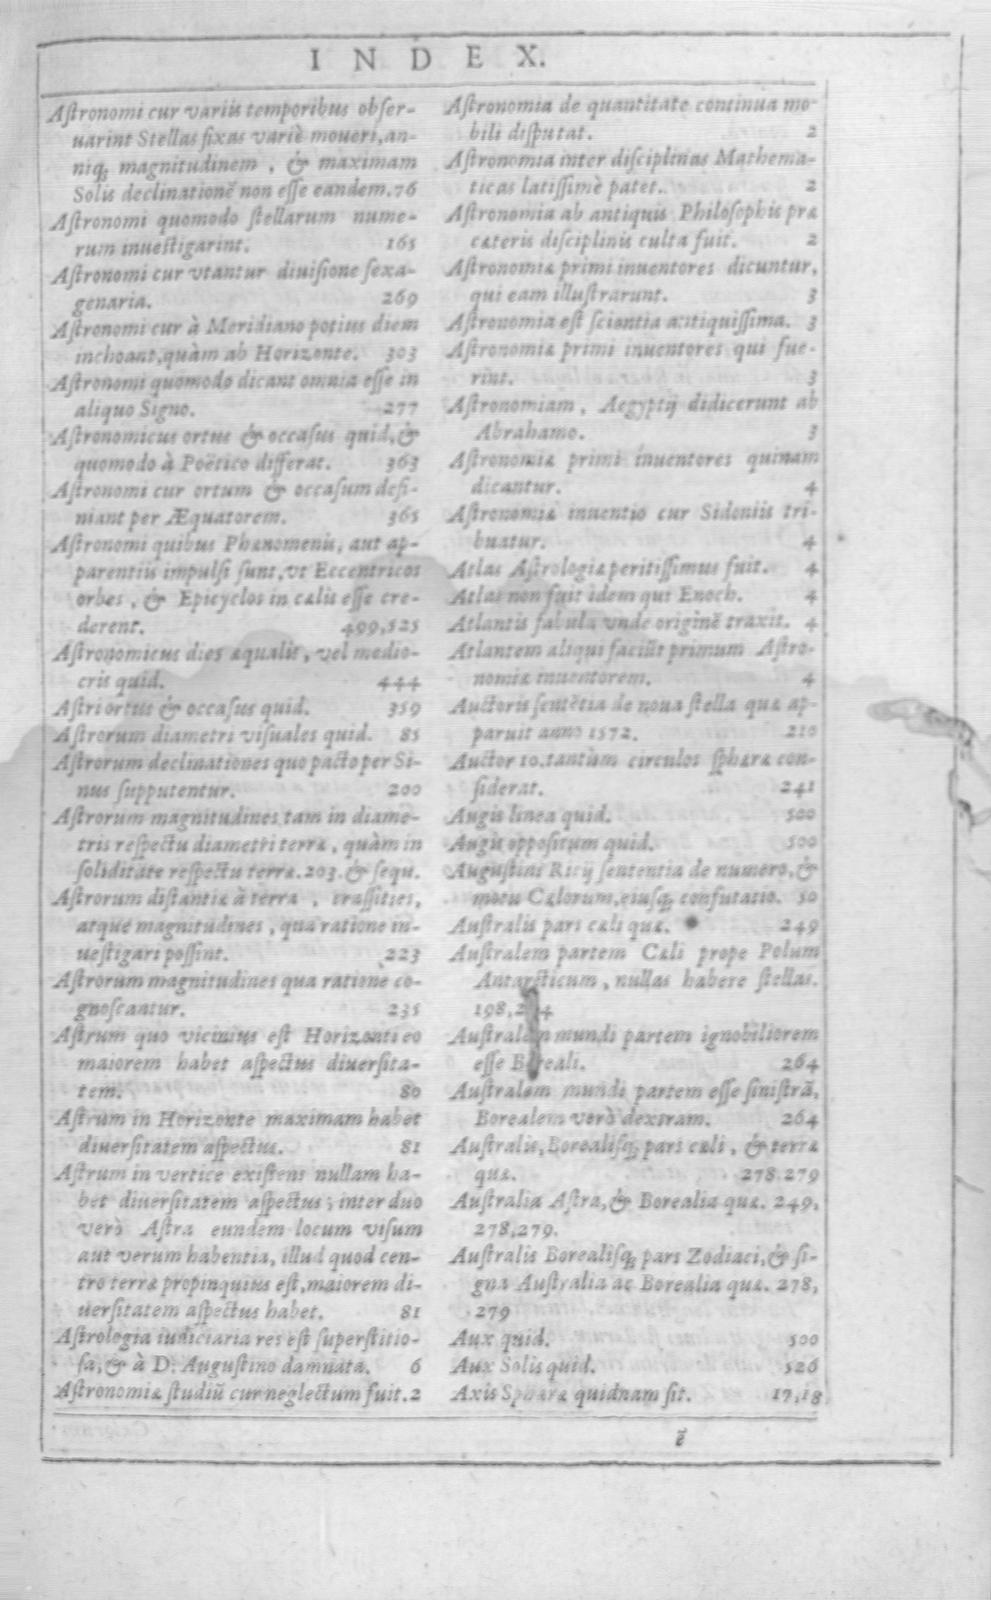 INDEX.
Astronomi cur variis temporibus obser-
uarint Stellas fixas variè moueri, an-
niq; magnitudinem, & maximam
Solis declinationē non esse eandem. 76
Astronomi quomodo stellarum nume-
rum inuestigarint. 165
Astronomi cur vtantur diuisione sexa-
genaria. 269
Astronomi cur à Meridiano potius diem
inchoant, quàm ab Horizonte. 303
Astronomi quomodo dicant omnia esse in
aliquo Signo. 277
Astronomicus ortus & occasus quid, &
quomodo à Poëtico differat. 363
Astronomi cur ortum & occasum defi-
niant per Æquatorem. 365
Astronomi quibus Phænomenis, aut ap-
parentiis impulsi sunt, vt Eccentricos
orbes, & Epicyclos in cælis esse cre-
derent. 499,525
Astronomicus dies æqualis, vel medio-
cris quid. 444
Astri ortus & occasus quid. 359
Astrorum diametri visuales quid. 85
Astrorum declinationes quo pacto per Si-
nus supputentur. 200
Astrorum magnitudines tam in diame-
tris respectu diametri terræ, quàm in
soliditate respectu terræ. 203. & sequ.
Astrorum distantiæ à terra, crassities,
atque magnitudines, qua ratione in-
uestigari possint. 223
Astrorum magnitudines qua ratione co-
gnoscantur. 235
Astrum quo vicinius est Horizonti eo
maiorem habet aspectus diuersita-
tem. 80
Astrum in Horizonte maximam habet
diuersitatem aspectus. 81
Astrum in vertice existens nullam ha-
bet diuersitatem aspectus; inter duo
verò Astra eundem locum visum
aut verum habentia, illud quod cen-
tro terræ propinquius est, maiorem di-
uersitatem aspectus habet. 81
Astrologia iudiciaria res est superstitio-
sa, & à D. Augustino damnata. 6
Astronomiæ studiū cur neglectum fuit. 2
Astronomia de quantitate continua mo-
bili disputat. 2
Astronomia inter disciplinas Mathema-
ticas latissimè patet. 2
Astronomia ab antiquis Philosophis præ
cæteris disciplinis culta fuit. 2
Astronomiæ primi inuentores dicuntur,
qui eam illustrarunt. 3
Astronomia est scientia antiquissima. 3
Astronomiæ primi inuentores qui fue-
rint. 3
Astronomiam, Aegyptij didicerunt ab
Abrahamo. 3
Astronomiæ primi inuentores quinam
dicantur. 4
Astronomiæ inuentio cur Sidoniis tri-
buatur. 4
Atlas Astrologiæ peritissimus fuit. 4
Atlas non fuit idem qui Enoch. 4
Atlantis fabula vnde originē traxit. 4
Atlantem aliqui faciūt primum Astro-
nomiæ inuentorem. 4
Auctoris sentētia de noua stella quæ ap-
paruit anno 1572. 210
Auctor 10. tantùm circulos sphæræ con-
siderat. 241
Augis linea quid. 500
Augis oppositum quid. 500
Augustini Ricij sententia de numero, &
motu Cælorum, eiusq; confutatio. 50
Australis pars cæli quæ. 249
Australem partem Cæli prope Polum
Antarcticum, nullas habere stellas.
Australem mundi partem ignobiliorem
esse Boreali. 264
Australem mundi partem esse sinistrā,
Borealem verò dextram. 264
Australis, Borealisq; pars cæli, & terræ
quæ. 278.279
Australia Astra, & Borealia quæ. 249,
278,279.
Australis Borealisq; pars Zodiaci, & si-
gna Australia ac Borealia quæ. 278,
279
Aux quid. 500
Aux Solis quid. 526
Axis Sphæræ quidnam sit. 17,18
ẽ